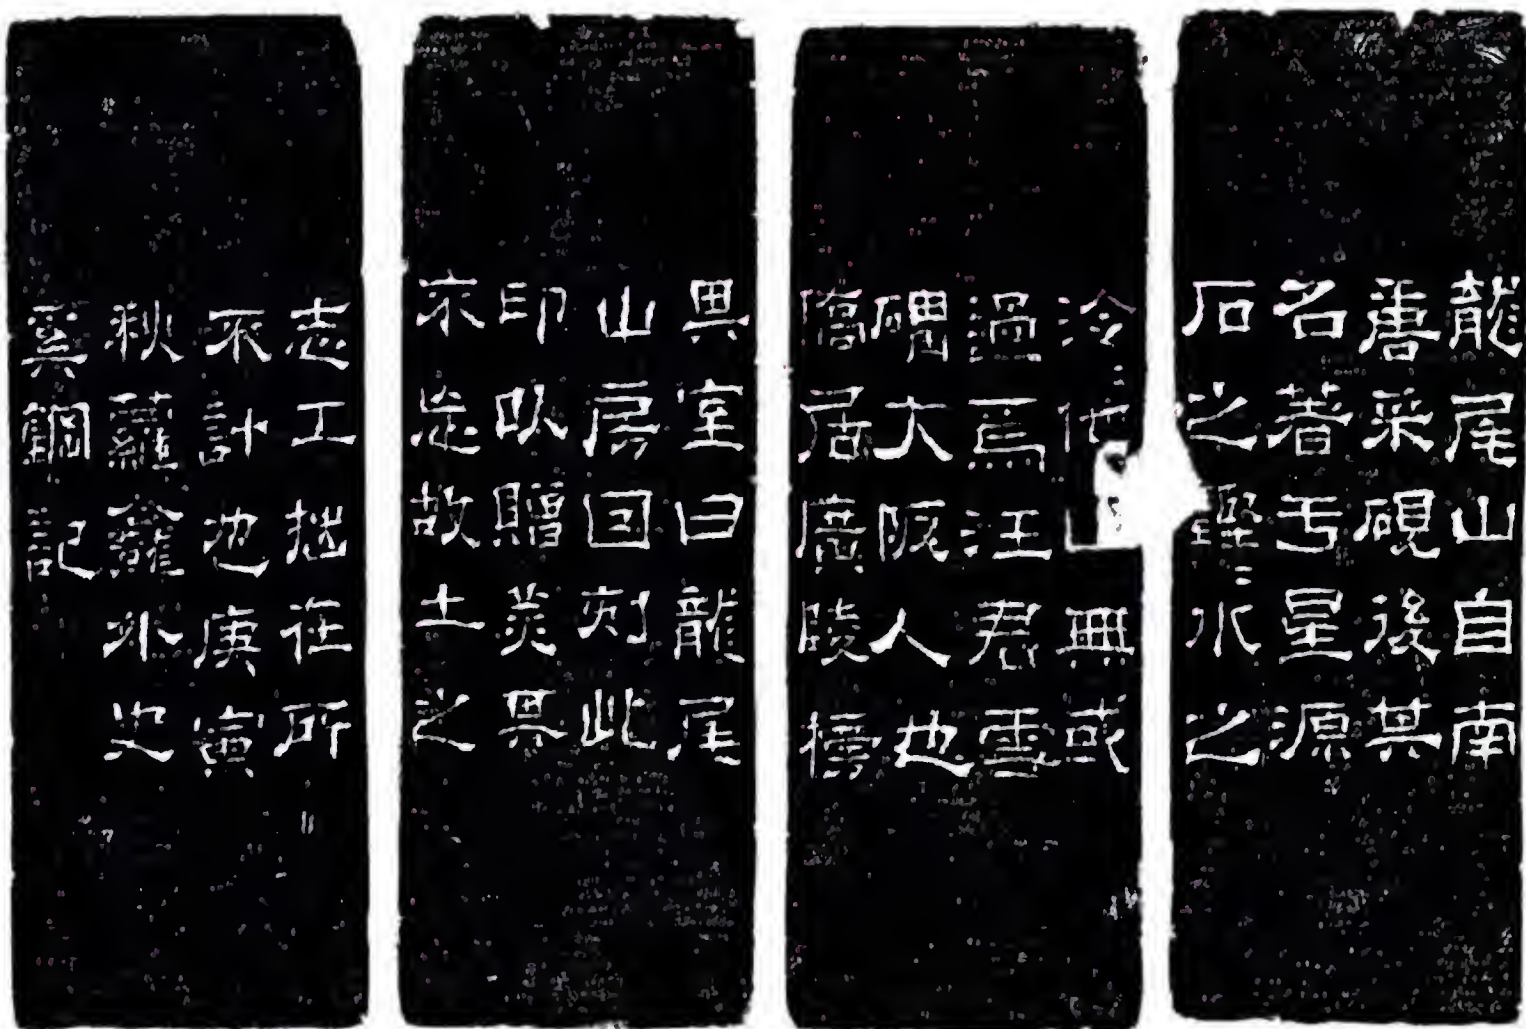 龍尾山自南
唐采硯後其
名著于星源
石之堅水之
冷他山無或
過焉汪君雪
礓大阪人也
僑居廣陵榜
其室曰龍尾
山房因刻此
印以贈羨其
不忘故土之
志工拙在所
不計也庚寅
秋蘿龕外史
奚鋼記